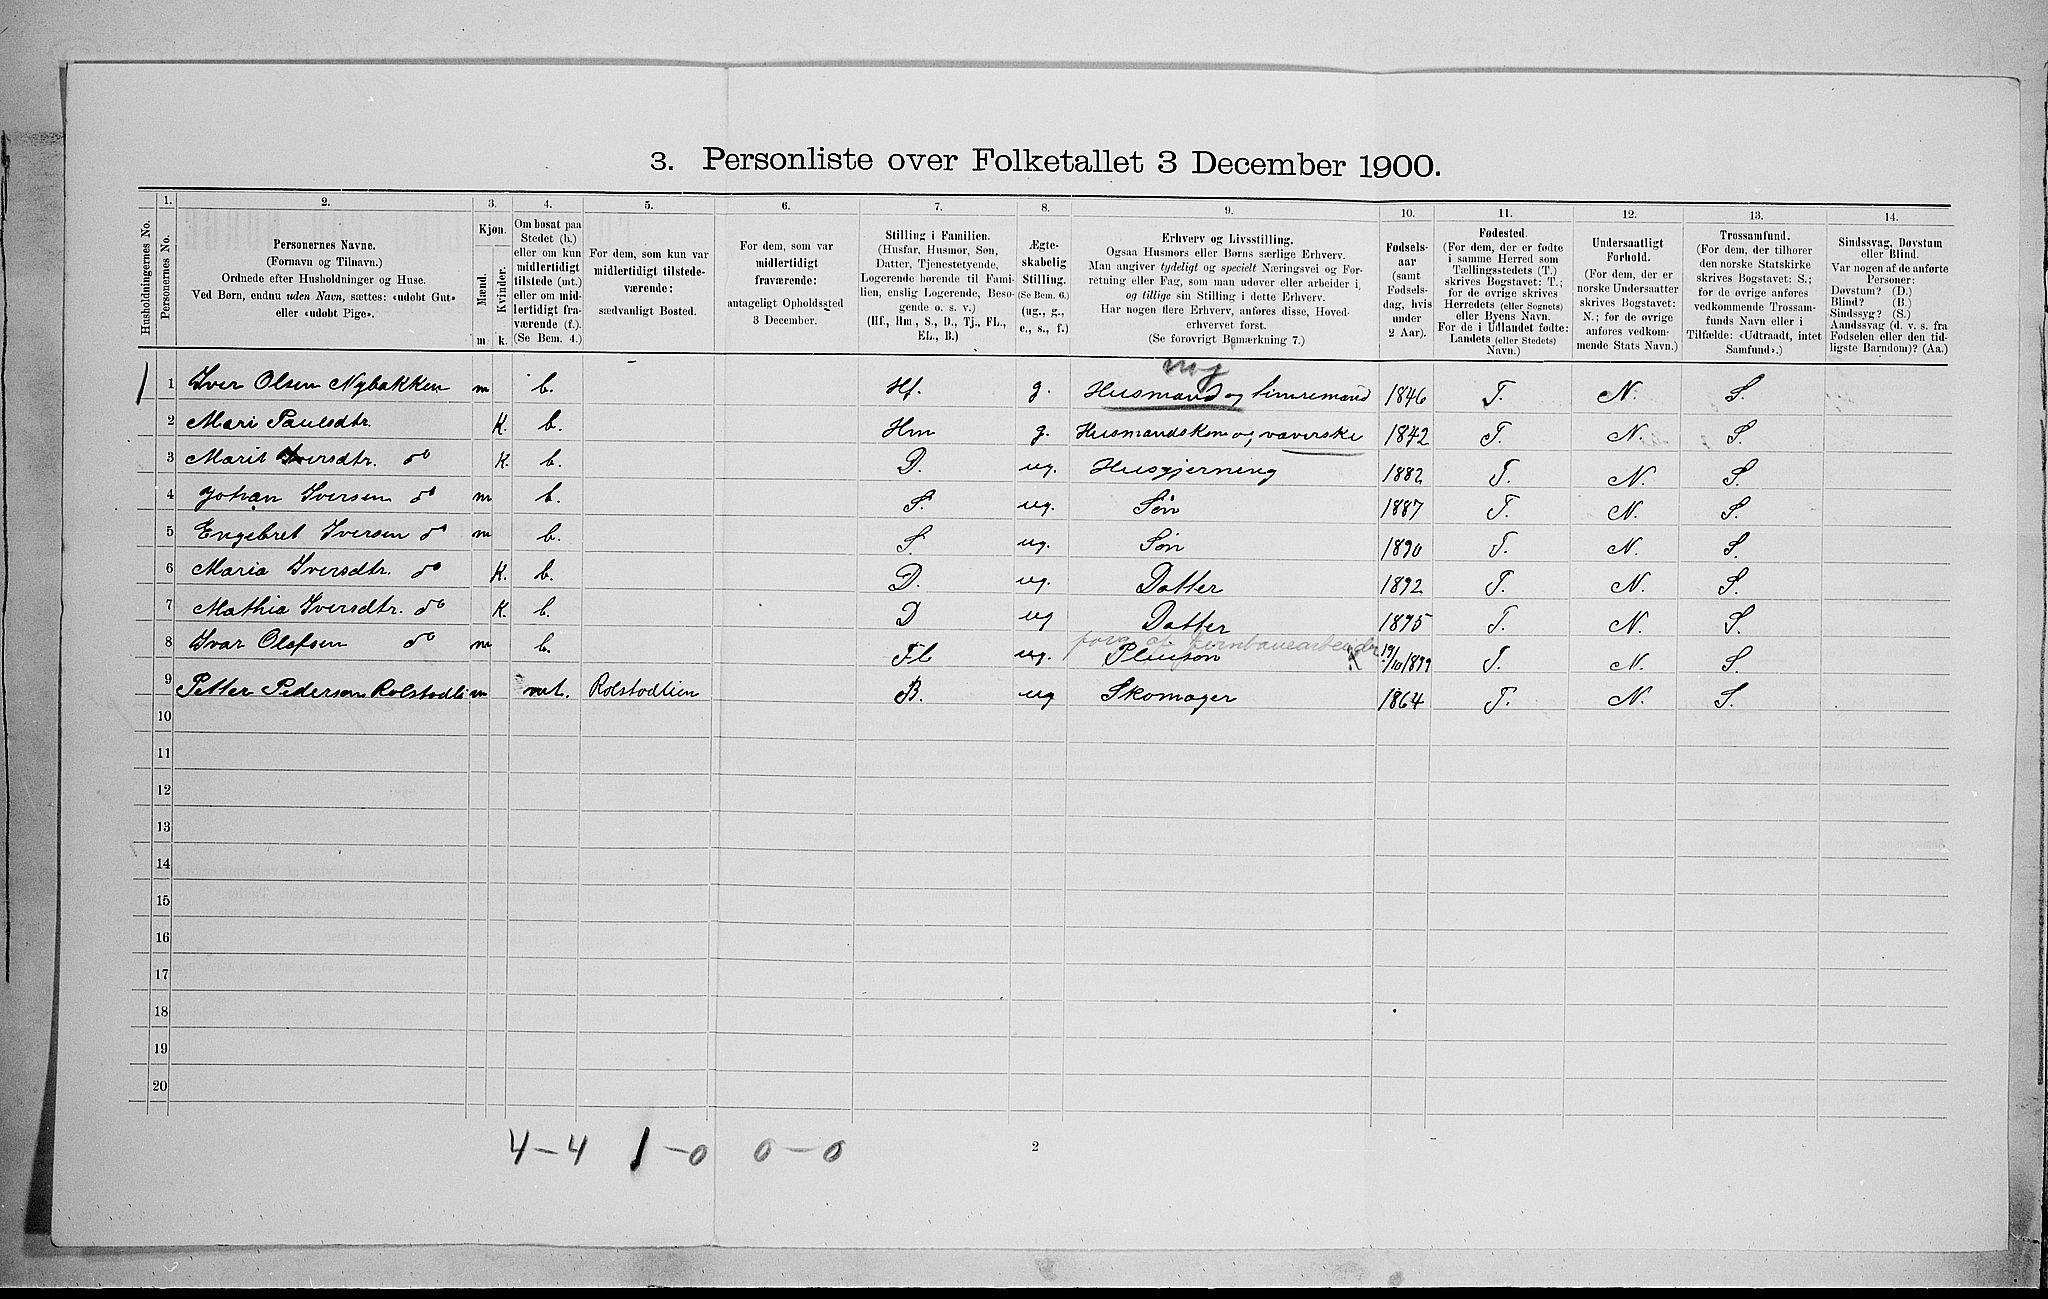 3. Personliste over Folketallet 3 December 1900.
1. 2. 3. 4. 5. 6. 7. 8. 9. 10. 11. 12. 13. 14.
Husholdningernes No.
Personernes No.
Personernes Navne.
(Fornavn og Tilnavn.)
Ordnede efter Husholdninger og Huse.
Ved Børn, endnu uden Navn, sættes: «udøbt Gut»
eller «udøbt Pige».
Kjøn.
Mænd.
Kvinder.
m k.
Om bosat paa
Stedet (b.)
eller om kun
midlertidigt
tilstede (mt.)
eller om mid-
lertidigt fra-
værende (f.).
(Se Bem. 4.)
For dem, som kun var
midlertidigt tilstede-
værende:
sædvanligt Bosted.
For dem, som var
midlertidigt
fraværende:
antageligt Opholdssted
3 December.
Stilling i Familien.
(Husfar, Husmor, Søn,
Datter, Tjenestetyende,
Logerende hørende til Fami-
lien, enslig Logerende, Besø-
gende o. s. v.)
(Hf., Hm., S., D., Tj., FL.,
EL., B.)
Ægte-
skabelig
Stilling.
(Se Bem. 6.)
(ug., g.,
e., s., f.)
Erhverv og Livsstilling.
Ogsaa Husmors eller Børns særlige Erhverv.
Man angiver tydeligt og specielt Næringsvei og For-
retning eller Fag, som man udøver eller arbeider i,
og tillige sin Stilling i dette Erhverv.
Har nogen flere Erhverv, anføres disse, Hoved-
erhvervet først.
(Se forøvrigt Bemærkning 7.)
Fødsels-
aar
(samt
Fødsels-
dag, hvis
under
2 Aar).
Fødested.
(For dem, der er fødte
i samme Herred som
Tællingsstedets (T.)
skrives Bogstavet: T.;
for de øvrige skrives
Herredets (eller Sognets)
eller Byens Navn.
For de i Udlandet fødte:
Landets (eller Stedets)
Navn.)
Undersaatligt
Forhold.
(For dem, der er
norske Undersaatter
skrives Bogstavet:
N.; for de øvrige
anføres vedkom-
mende Stats Navn.)
Trossamfund.
(For dem, der tilhører
den norske Statskirke
skrives Bogstavet: S.;
for de øvrige anføres
vedkommende Trossam-
funds Navn eller i
Tilfælde: «Udtraadt, intet
Samfund».)
Sindssvag, Døvstum
eller Blind.
Var nogen af de anførte
Personer:
Døvstum? (D.)
Blind? (B.)
Sindssyg? (S.)
Aandssvag (d. v. s. fra
Fødselen eller den tid-
ligste Barndom)? (Aa.)
1 1 Iver Olsen Nybakken m b. Hf. g. Husmand og tømremand 1846 T. N. S.
2 Mari Paulsdtr. K. b. Hm g. Husmandskone og væverske 1842 T. N. S.
3 Marit Iversdtr. do K. b. D. ug. Husgjerning 1882 T. N. S.
4 Johan Iversen do m b. S. ug. Søn 1887 T. N. S.
5 Engebret Iversen do m b. S. ug. Søn 1890 T. N. S.
6 Maria Iversdtr. do K. b. D. ug. Datter 1892 T. N. S.
7 Mathia Iversdtr. do K. b. D ug Datter 1895 T. N. S.
fors. af jernbanearbeider
8 Ivar Olafsen do m b. FL ug. Pleiesøn 19/10 1899 T. N. S.
9 Petter Pedersen Rolstadlien m mt. Rolstadlien B. ug Skomager 1864 T. N. S.
10
11
12
13
14
15
16
17
18
19
20
4-4 1-0 0-0
2